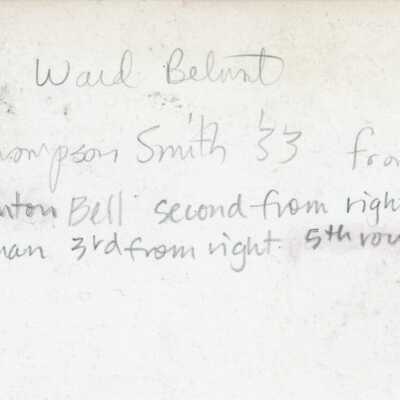 Ward Belunt
hompson Smith '33 fron
nton Bell second from right
man 3rd from right 5th row